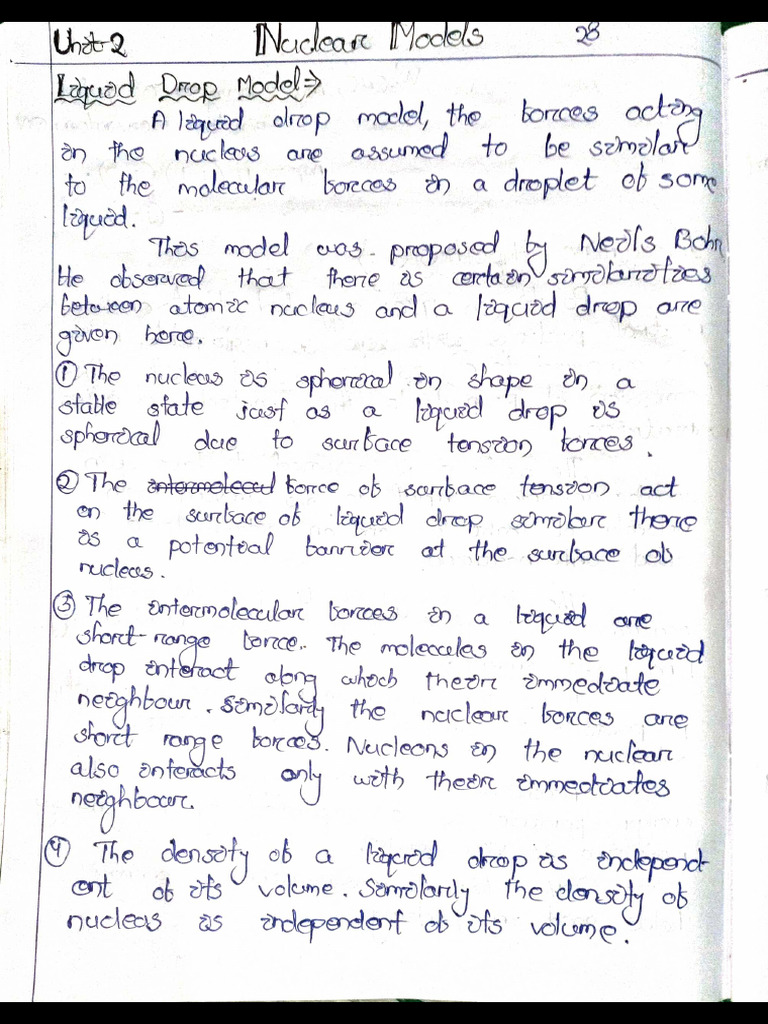 Unit-2 Nuclear Models 28
Liquid Drop Model⇒
A liquid drop model, the forces acting
in the nucleus are assumed to be similar
to the molecular forces in a droplet of some
liquid.
This model was proposed by Neils Bohr
He observed that there is certain similarities
between atomic nucleus and a liquid drop are
given here.
① The nucleus is spherical in shape in a
stable state just as a liquid drop is
spherical due to surface tension forces.
② The intermolecul force of surface tension act
on the surface of liquid drop similar there
is a potential barrier at the surface of
nucleus.
③ The intermolecular forces in a liquid are
short-range force. The molecules in the liquid
drop interact along which their immediate
neighbour. Similarly the nuclear forces are
short range forces. Nucleons in the nuclear
also interacts only with their immediates
neighbour.
④ The density of a liquid drop is independ-
ent of its volume. Similarly the density of
nucleus is independent of its volume.